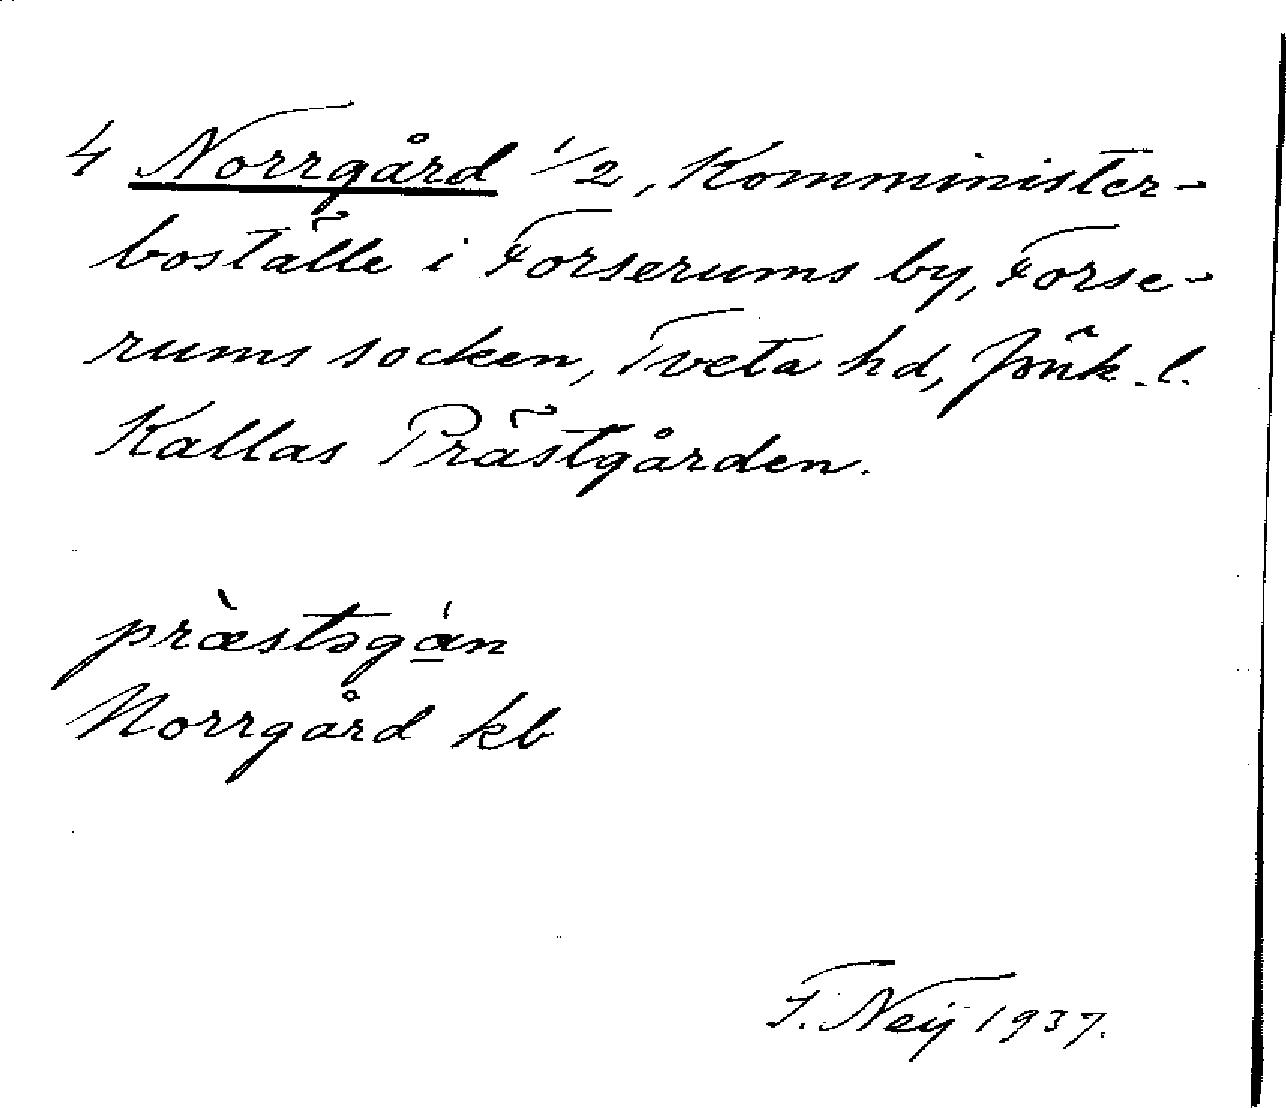 4 Norrgård 1/2, Komminister-
boställe i Forserums by, Forse-
rums socken, Tveta hd, Jönk. l.
Kallas Prästgården.
præ̀stəgɑ́n
Norrgård kb
F. Neij 1937.